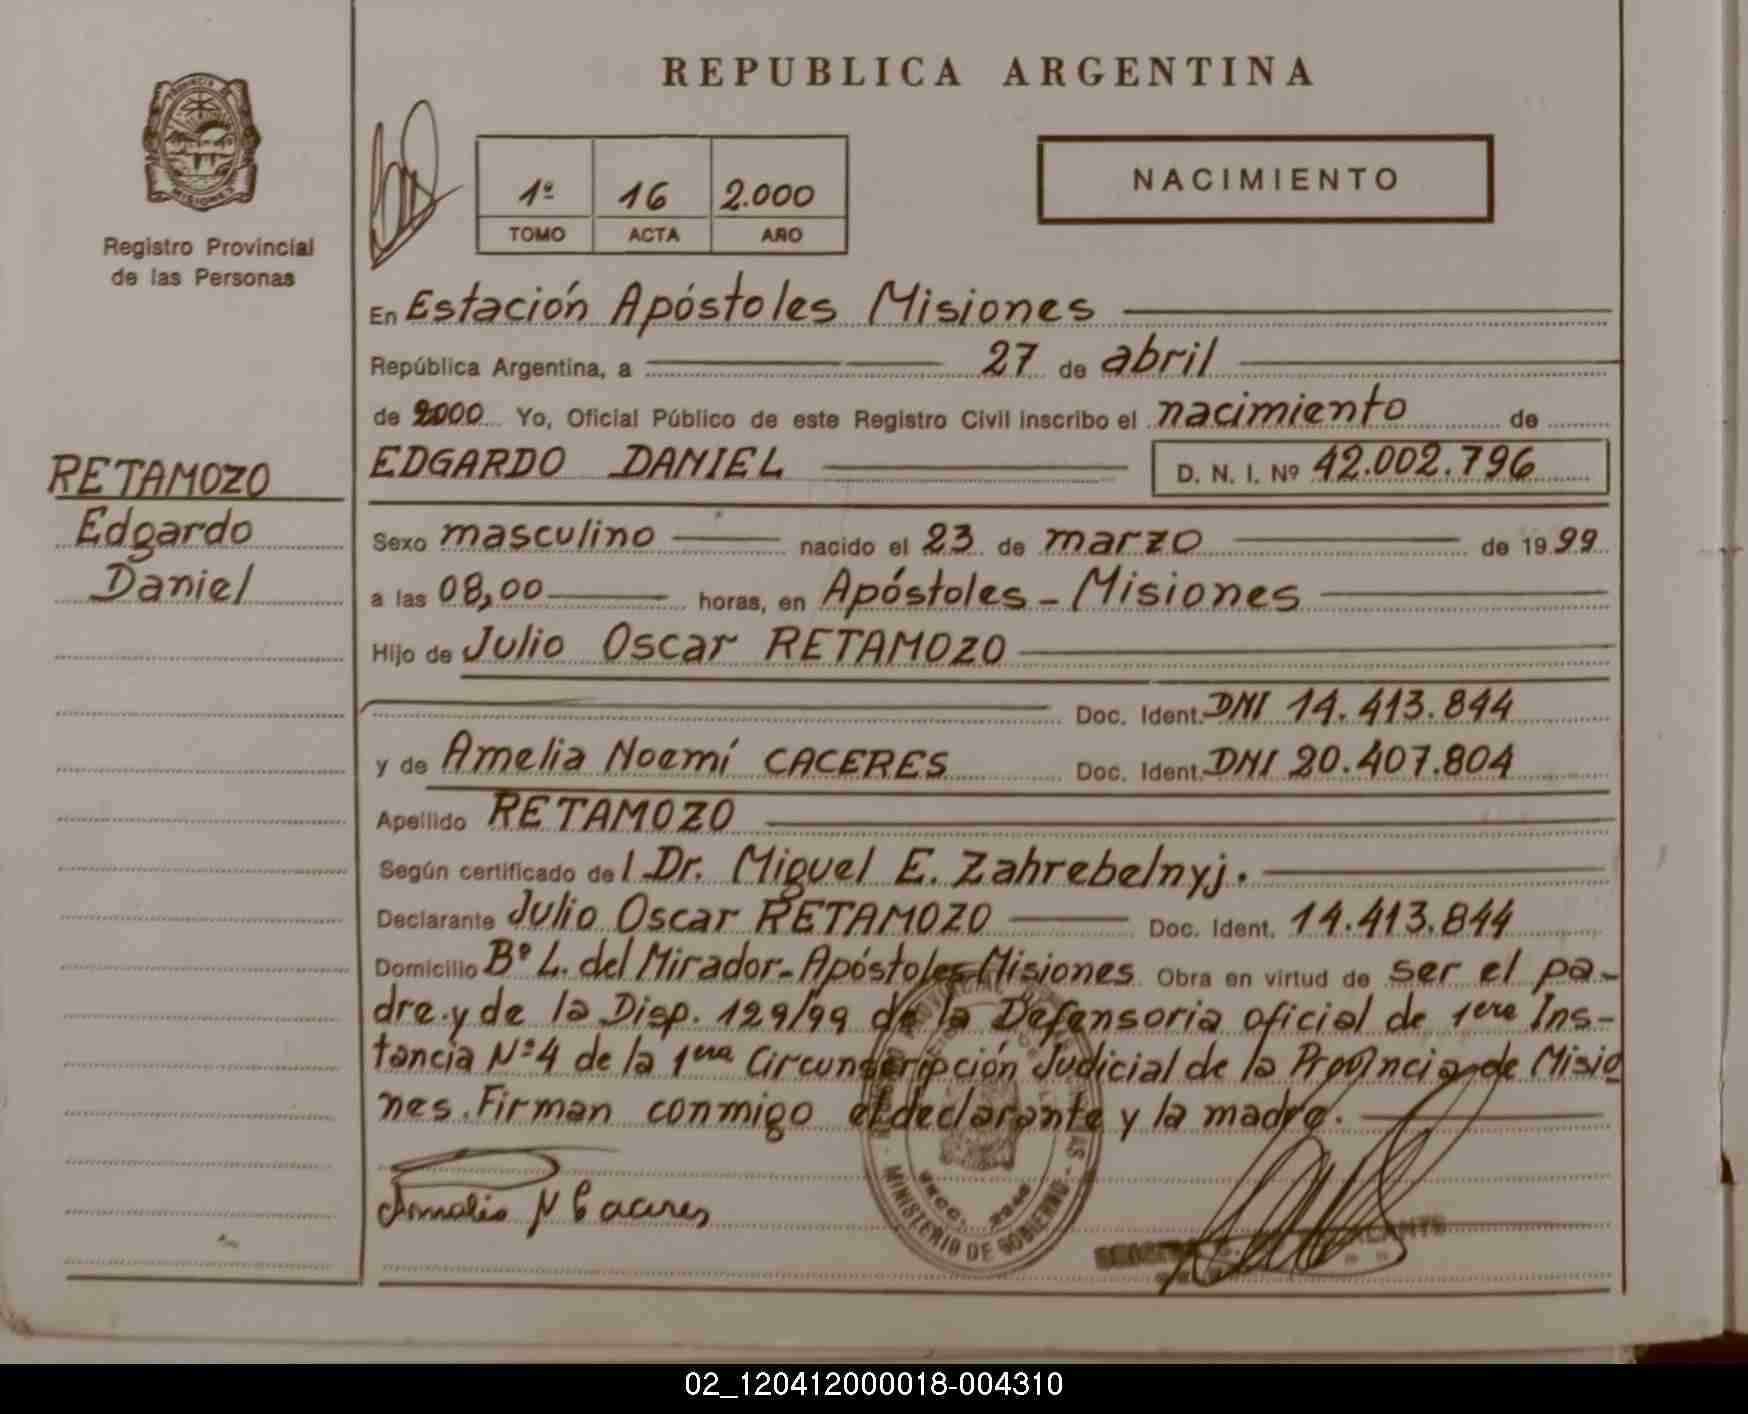 REPUBLICA ARGENTINA
PROVINCIA DE
MISIONES
Registro Provincial
de las Personas
1º 16 2.000
TOMO ACTA AÑO
NACIMIENTO
En Estación Apóstoles Misiones
República Argentina, a 27 de abril
de 2000 Yo, Oficial Público de este Registro Civil inscribo el nacimiento de
EDGARDO DANIEL D. N. I. Nº 42.002.796
RETAMOZO
Edgardo
Daniel
Sexo masculino nacido el 23 de marzo de 1999
a las 08,00 horas, en Apóstoles - Misiones
Hijo de Julio Oscar RETAMOZO
Doc. Ident. DNI 14.413.844
y de Amelia Noemí CACERES Doc. Ident. DNI 20.407.804
Apellido RETAMOZO
Según certificado del Dr. Miguel E. Zahrebelnyj.
Declarante Julio Oscar RETAMOZO Doc. Ident. 14.413.844
Domicilio Bº L. del Mirador - Apóstoles Misiones Obra en virtud de ser el pa-
dre y de la Disp. 129/99 de la Defensoria oficial de 1era Ins-
tancia Nº 4 de la 1era Circunscripción Judicial de la Provincia de Misio
nes. Firman conmigo el declarante y la madre.
Amelia N Caceres
MINISTERIO DE GOBIERNO
02_120412000018-004310